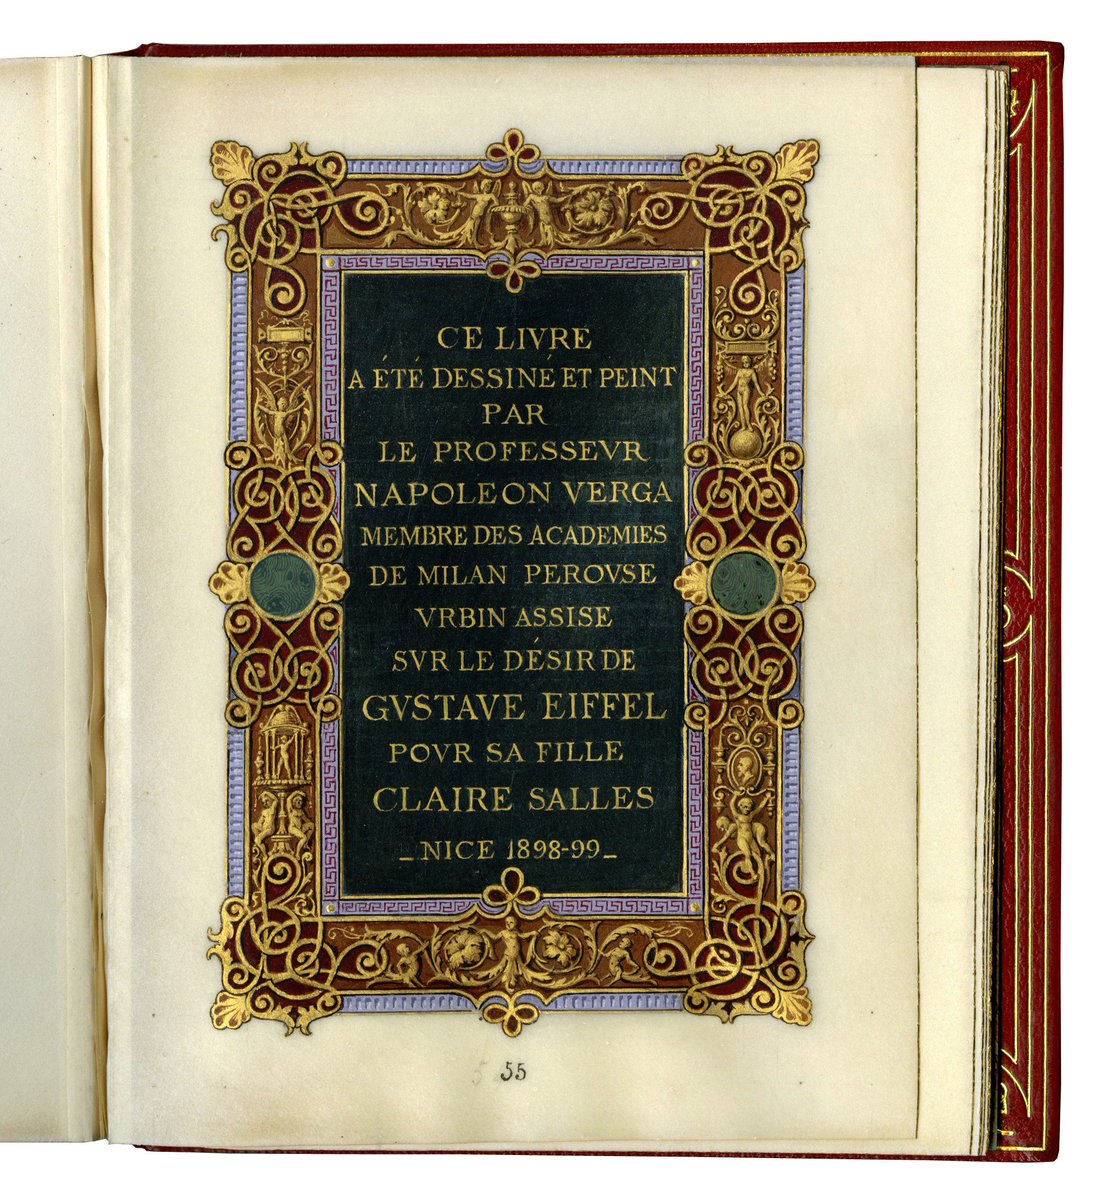 CE LIVRE
A ÉTÉ DESSINÉ ET PEINT
PAR
LE PROFESSEVR
NAPOLEON VERGA
MEMBRE DES ACADEMIES
DE MILAN PEROVSE
VRBIN ASSISE
SVR LE DÉSIR DE
GVSTAVE EIFFEL
POVR SA FILLE
CLAIRE SALLES
_ NICE 1898-99 _
55